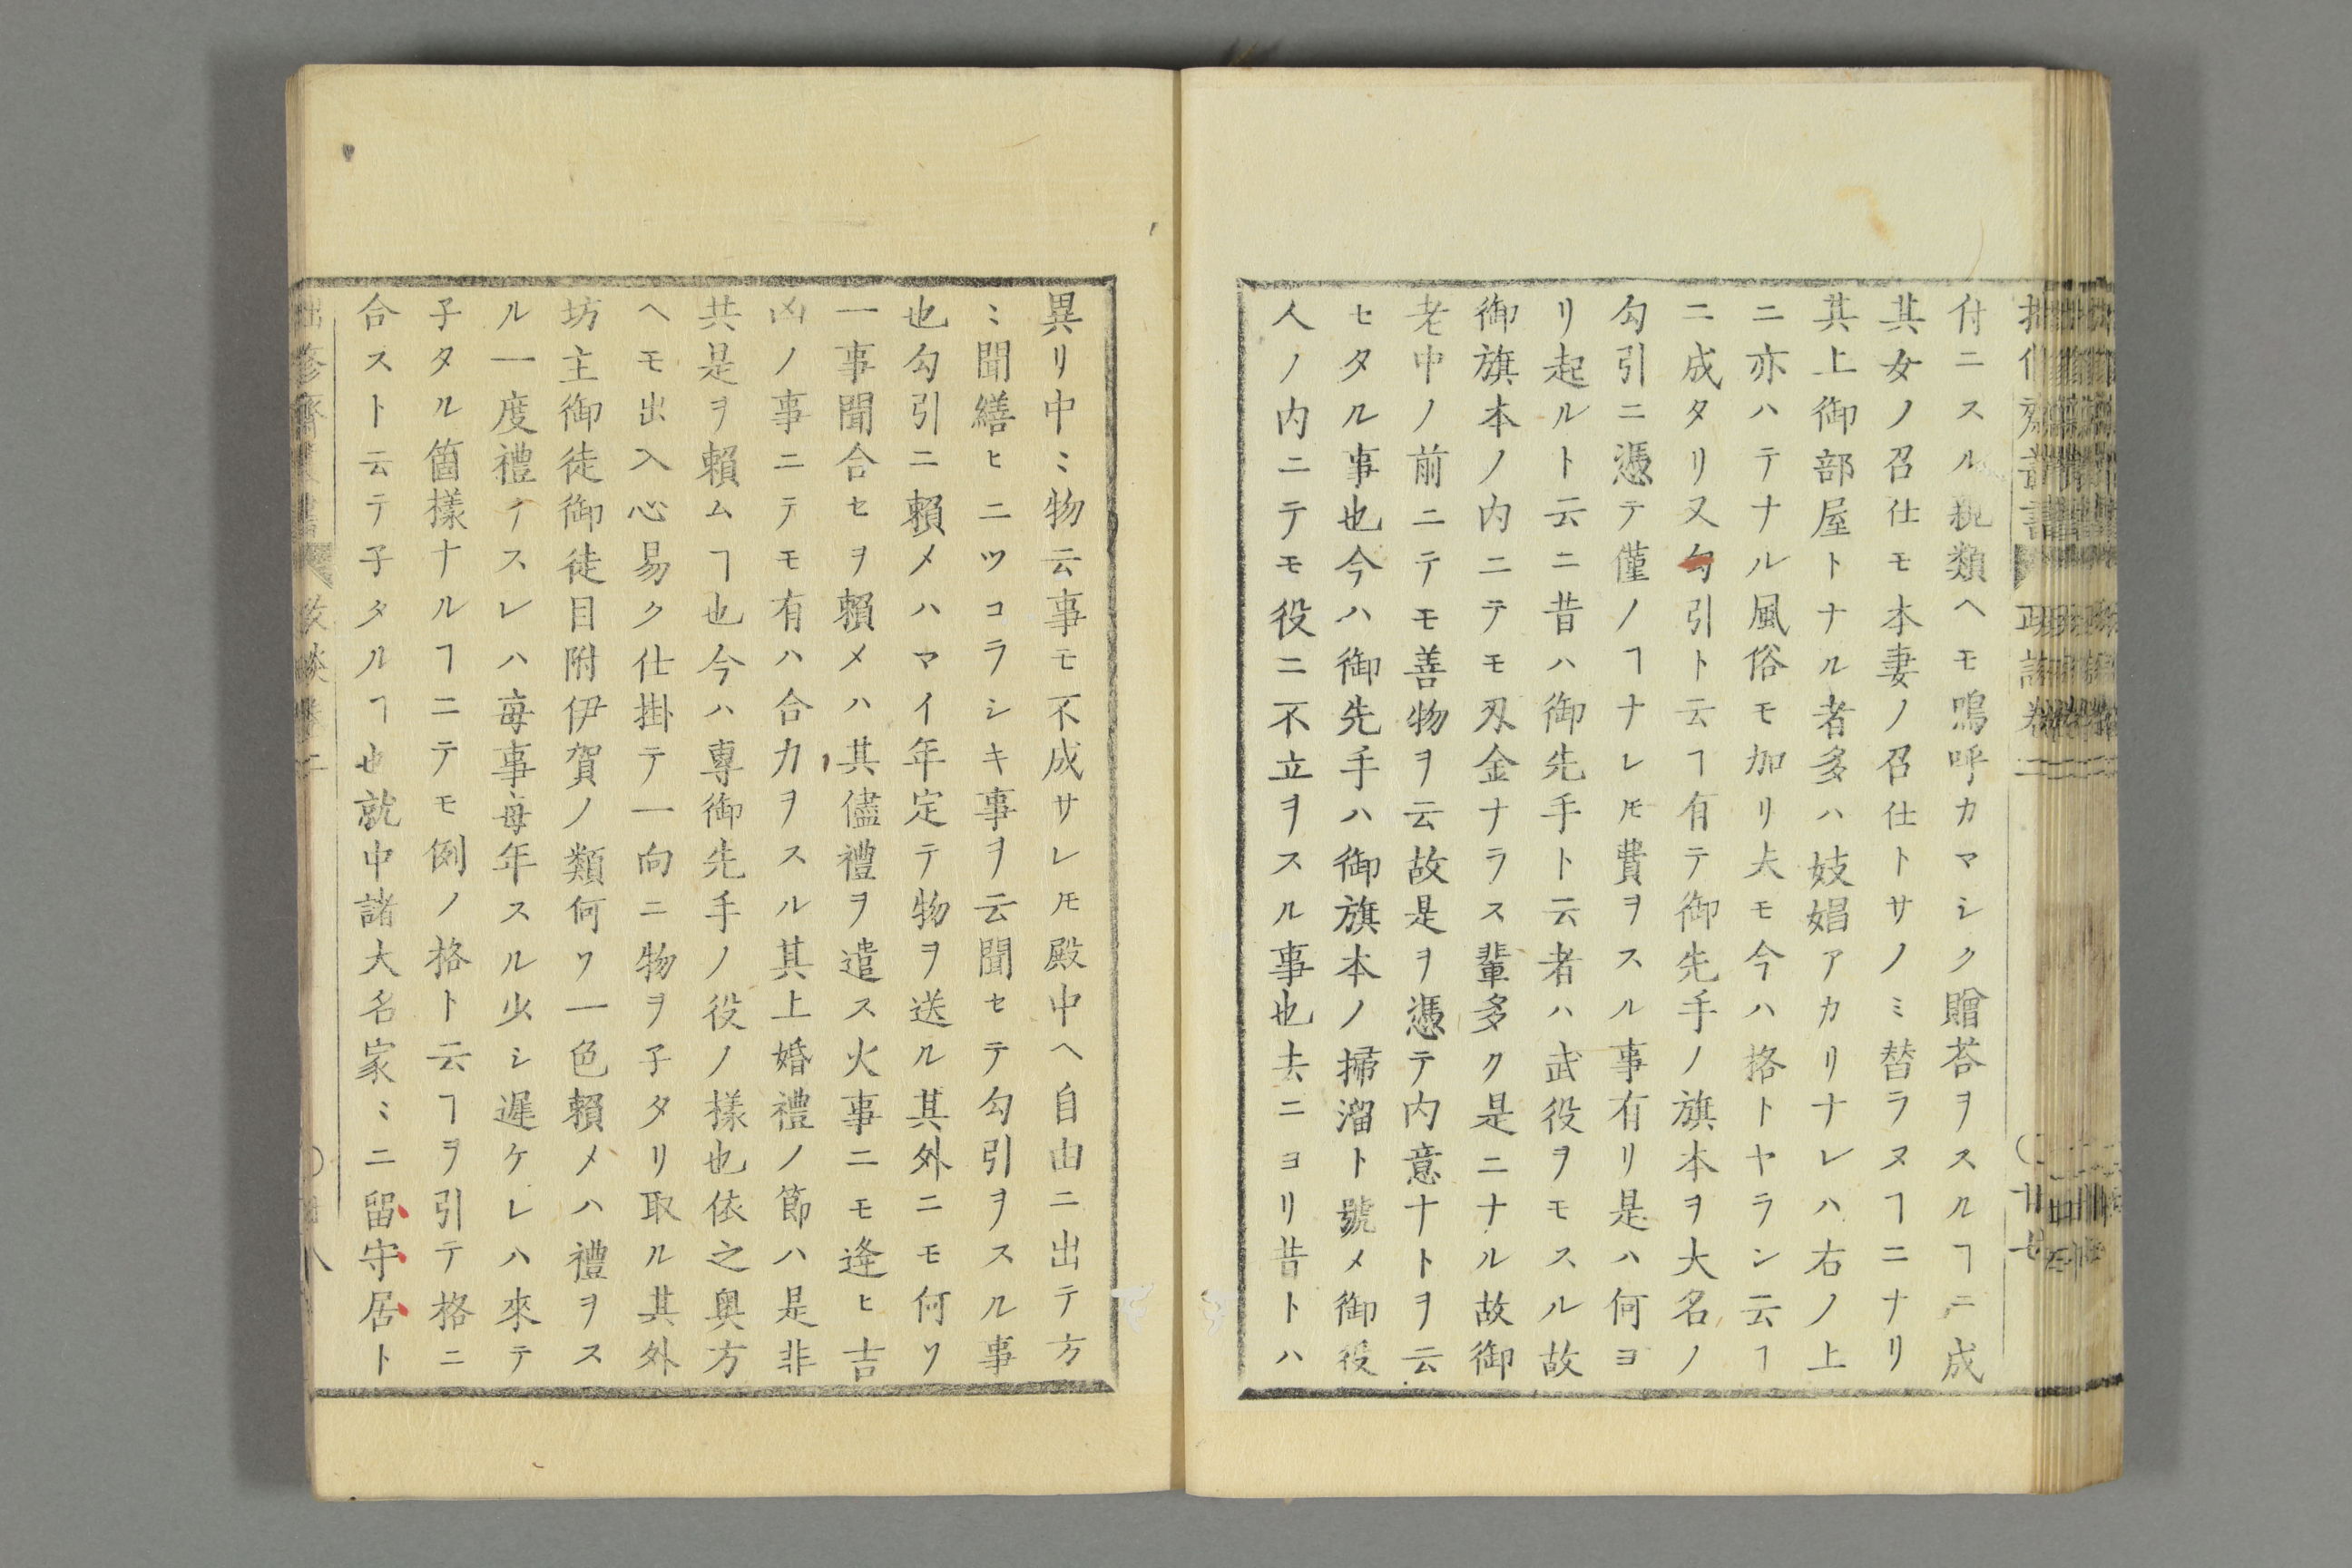 付ニスル親類ヘモ鳴呼カマシク贈荅ヲスルヿニ成
其女ノ召仕モ本妻ノ召仕トサノミ替ラヌヿニナリ
其上御部屋トナル者多ハ妓娼アカリナレハ右ノ上
ニ亦ハテナル風俗モ加リ夫モ今ハ格トヤラン云ヿ
ニ成タリ又勾引ト云ヿ有テ御先手ノ旗本ヲ大名ノ
勾引ニ憑テ僅ノヿナレ𪜈費ヲスル事有リ是ハ何ヨ
リ起ルト云ニ昔ハ御先手ト云者ハ武役ヲモスル故
御旗本ノ内ニテモ刄金ナラス輩多ク是ニナル故御
老中ノ前ニテモ善物ヲ云故是ヲ憑テ内意ナトヲ云
セタル事也今ハ御先手ハ御旗本ノ掃溜ト號メ御役
人ノ内ニテモ役ニ不立ヲスル事也夫ニヨリ昔トハ
異リ中〻物云事モ不成サレ𪜈殿中ヘ自由ニ出テ方
〻聞繕ヒニツコラシキ事ヲ云聞セテ勾引ヲスル事
也勾引ニ賴メハマイ年定テ物ヲ送ル其外ニモ何ソ
一事聞合セヲ賴メハ其儘禮ヲ遣ス火事ニモ逢ヒ吉
凶ノ事ニテモ有ハ合力ヲスル其上婚禮ノ節ハ是非
共是ヲ賴ムヿ也今ハ專御先手ノ役ノ樣也依之奥方
ヘモ出入心易ク仕掛テ一向ニ物ヲ子タリ取ル其外
坊主御徒御徒目附伊賀ノ類何ソ一色賴メハ禮ヲス
ル一度禮ヲスレハ每事每年スル少シ遲ケレハ來テ
子タル箇樣ナルヿニテモ例ノ格ト云ヿヲ引テ格ニ
合ストテ云テ子タルヿ也就中諸大名家〻ニ留守居ト